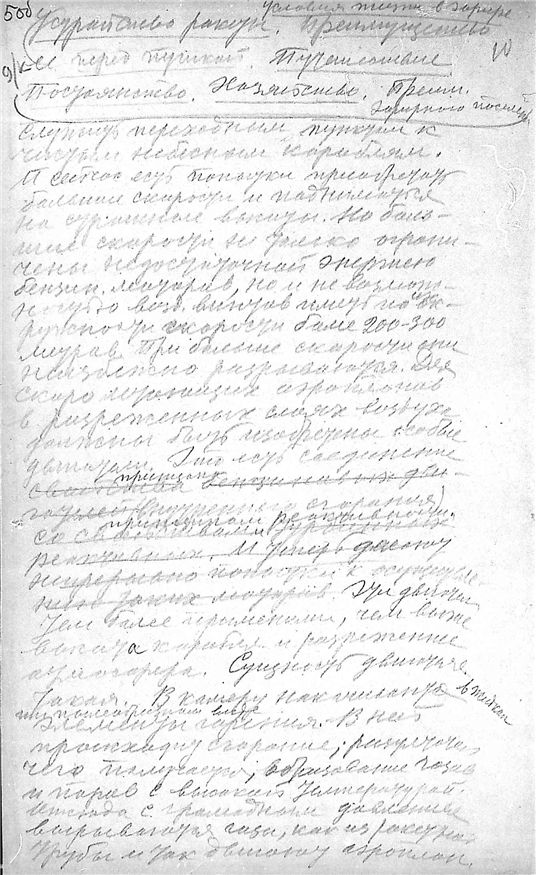 50б Условия жизни в эфире
Устройство ракеты. Преимущество
ее перед пушкой. Путешествие
Постоянство. Хозяйство. Преим.
эфирного
служить переходным пунктом к
чистым небесным кораблям.
И сейчас есть попытки приобретать
большие скорости и подниматься
на огромные высоты. Но боль-
шие скорости не только ограни-
чены недостаточной энергией
бензин. моторов, но и невозмож-
ностью возд. винтов иметь на ок-
ружности скорости более 200-300
метров. При больше скорости они
неизбежно разрываются. Для
скоро летающих аэропланов
в разреженных слоях воздуха
должны быть изобретены особые
двигатели. Это есть соединение
принципа
двигателей внутреннего сгорания
со принципом реактивности
реактивных. И теперь делают
непрерывно попытки к
таких моторов. Эти двигат.
тем более применимы, чем выше
высота корабля и разреженнее
атмосфера. Сущность двигателя
такая. В камеру накачиваются в жидком
или газообразном виде
элементы горения. В ней
происходит сгорание, результатом
чего получается образование газов
и паров с высокой температурой.
Отсюда с громадным давлением
вырываются газы, как из ракетной
трубы и так двигают аэроплан.